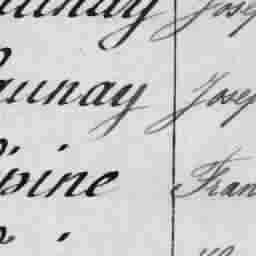 aunay Josep
aunay Josep
pine Fran